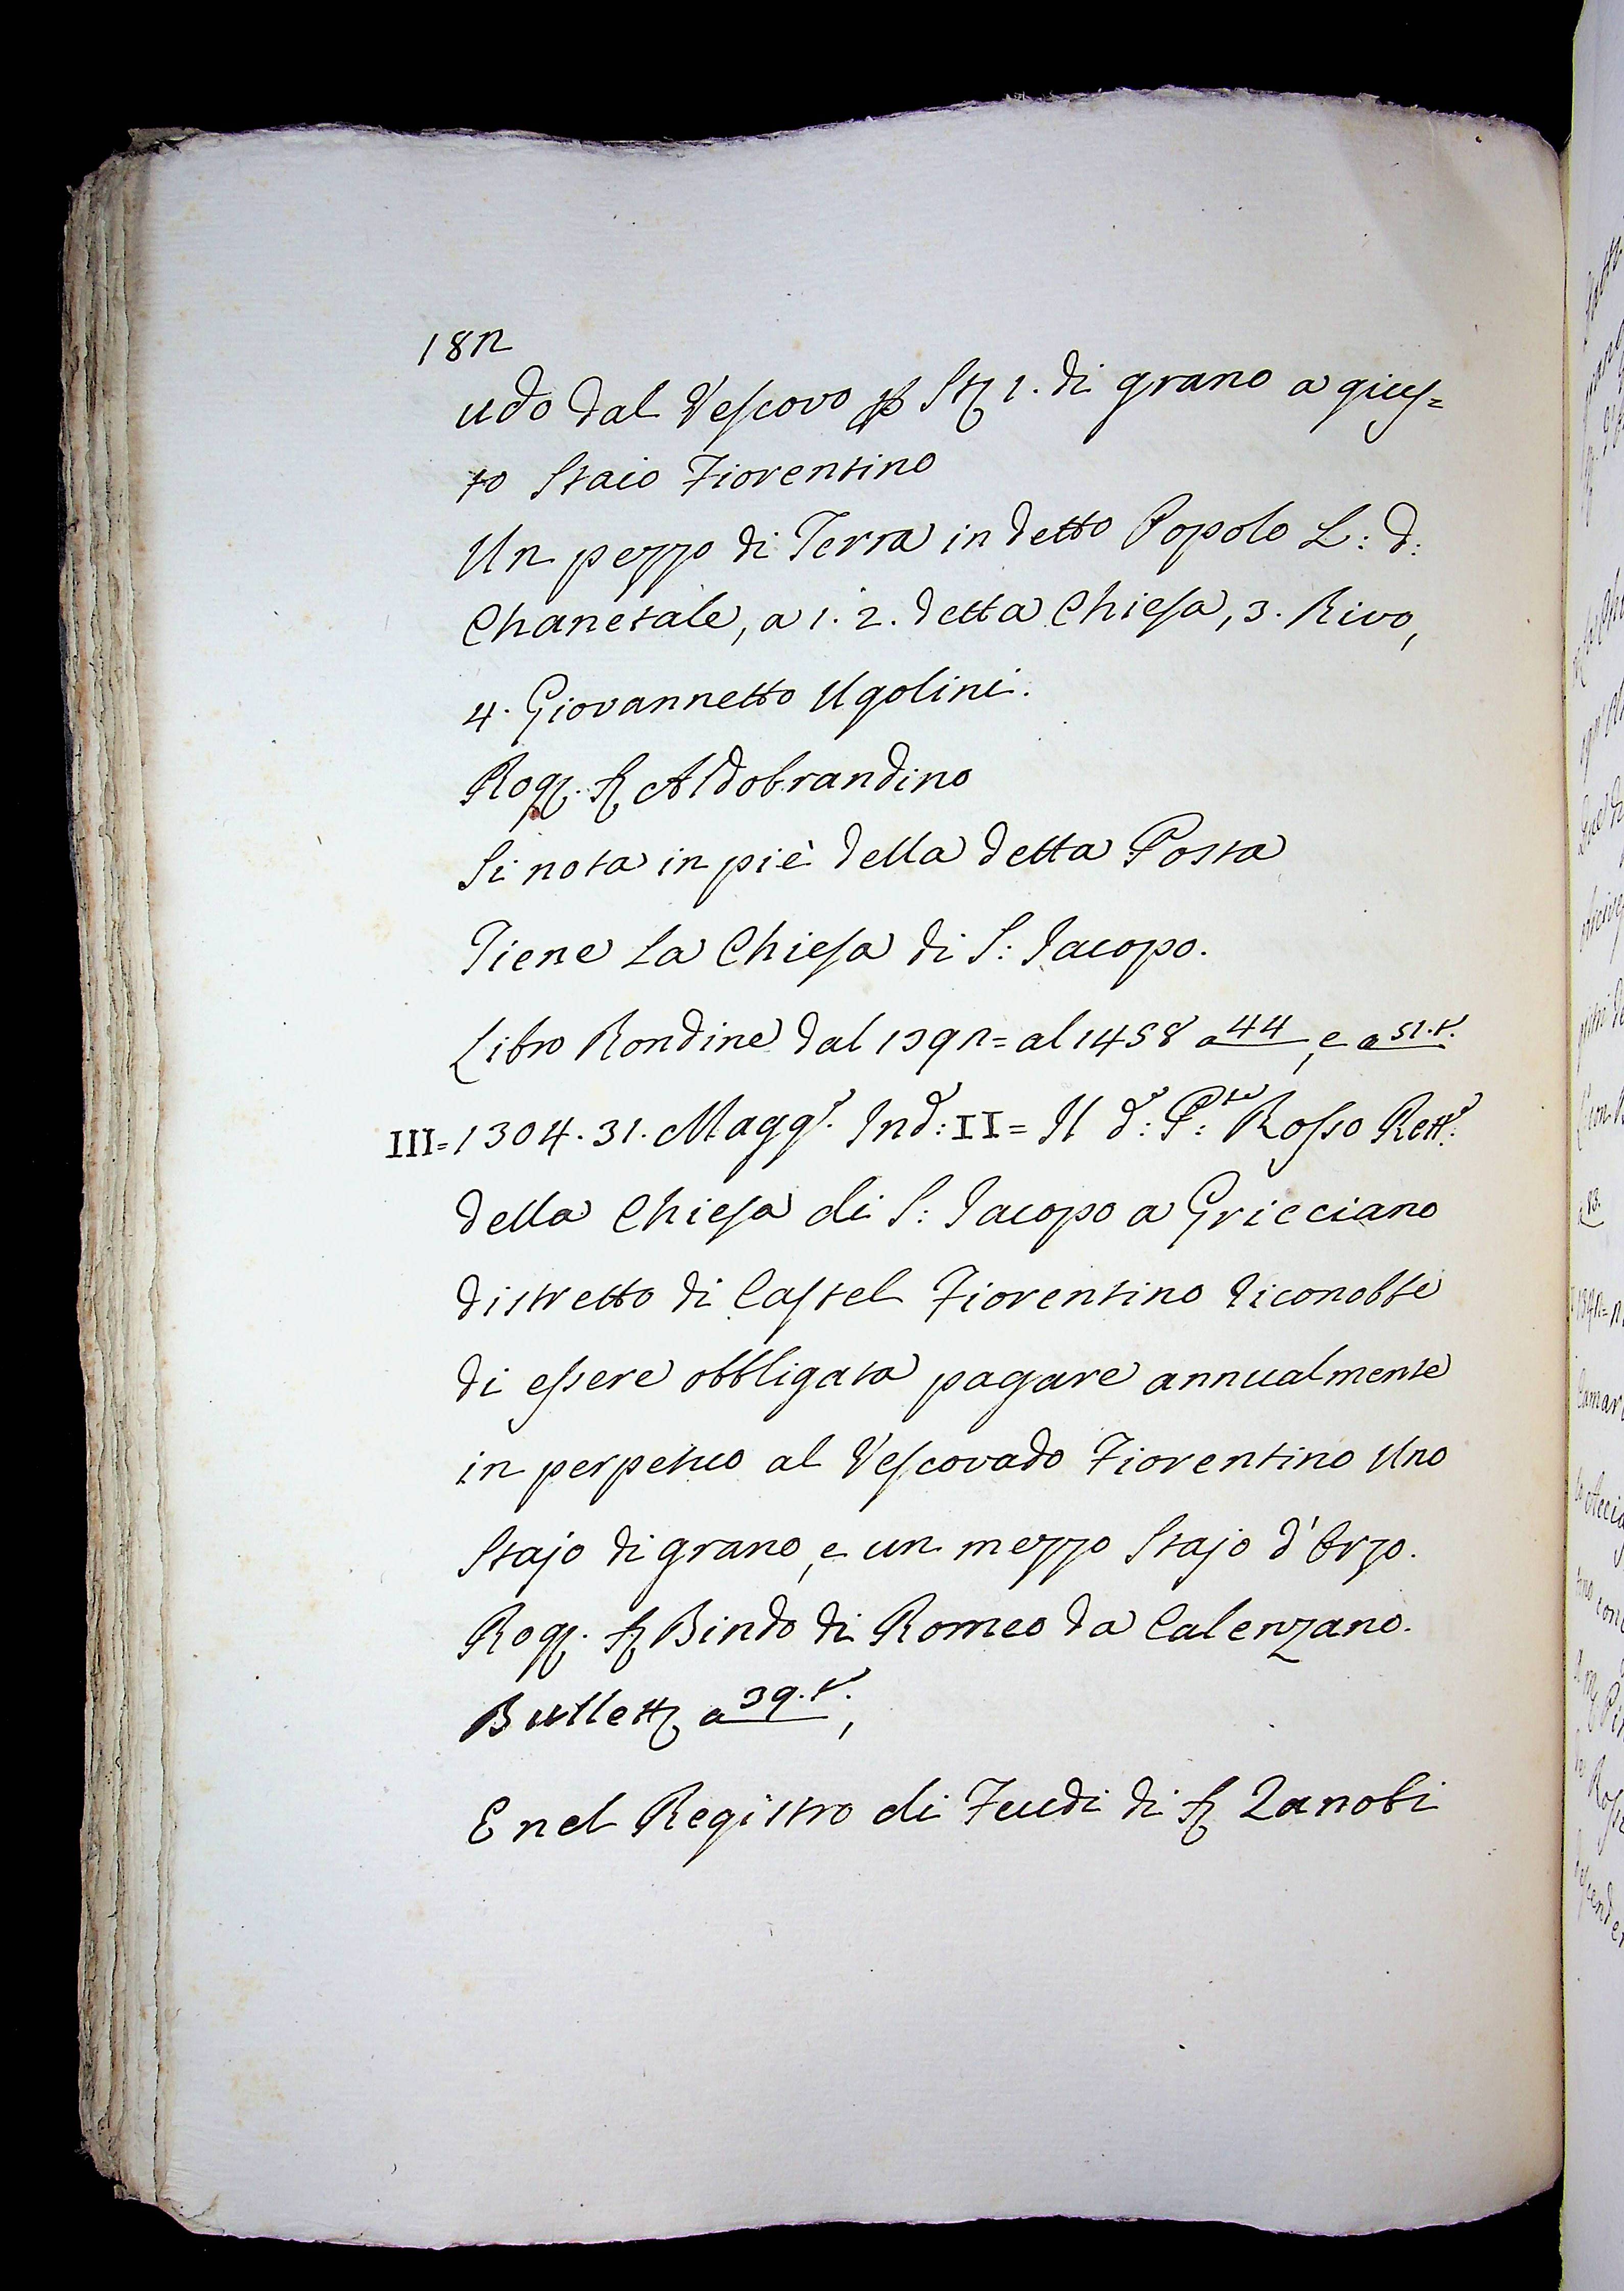 182
udo dal Vescovo p Sta 1. di grano a gius=
to Staio Fiorentino
Un pezzo di Terra in detto Popolo L: d:
Chanetale, a 1. 2. detta Chiesa, 3. Rivo,
4. Giovannetto Ugolini.
Rog. S. Aldobrandino
Si nota in piè della detta Posta
Tiene La Chiesa di S: Jacopo.
Libro Rondine dal 1392= al 1458 a 44, e a 51.t.
III= 1304. 31. Magg.o Ind: II= Il d.o: P.te: Rosso Rett.e:
della Chiesa di S: Jacopo a Gricciano
distretto di Castel Fiorentino riconobbe
di essere obbligata pagare annualmente
in perpetuo al Vescovado Fiorentino Uno
Stajo di grano, e un mezzo Stajo d'Orzo.
Rog. S. Bindo di Romeo da Calenzano.
Bullett. a 39.t.,
E nel Registro di Feudi di S. Zanobi